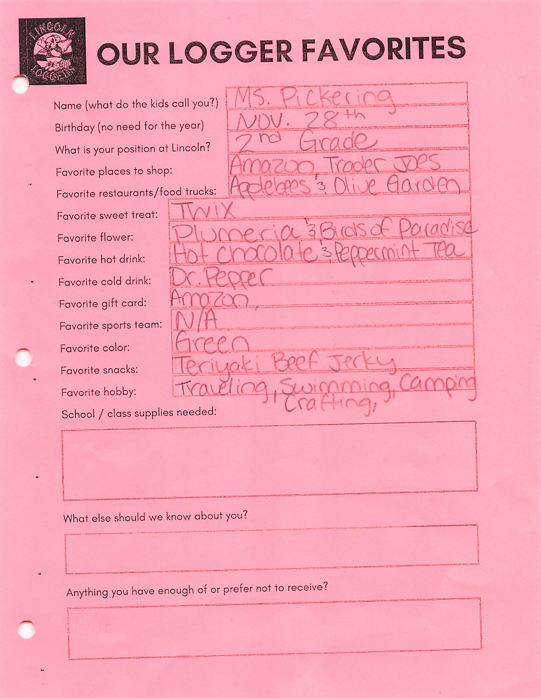 LINCOLN
LOGGERS
OUR LOGGER FAVORITES
Name (what do the kids call you?) Ms. Pickering
Birthday (no need for the year) NOV. 28th
What is your position at Lincoln? 2nd Grade
Favorite places to shop: Amazon, Trader Joes
Favorite restaurants/food trucks: Applebees & Olive Garden
Favorite sweet treat: Twix
Favorite flower: Plumeria & Birds of Paradise
Favorite hot drink: Hot chocolate & Peppermint Tea
Favorite cold drink: Dr. Pepper
Favorite gift card: Amazon
Favorite sports team: N/A
Favorite color: Green
Favorite snacks: Teriyaki Beef Jerky
Favorite hobby: Traveling, Swimming, Camping
Crafting,
School / class supplies needed:
What else should we know about you?
Anything you have enough of or prefer not to receive?